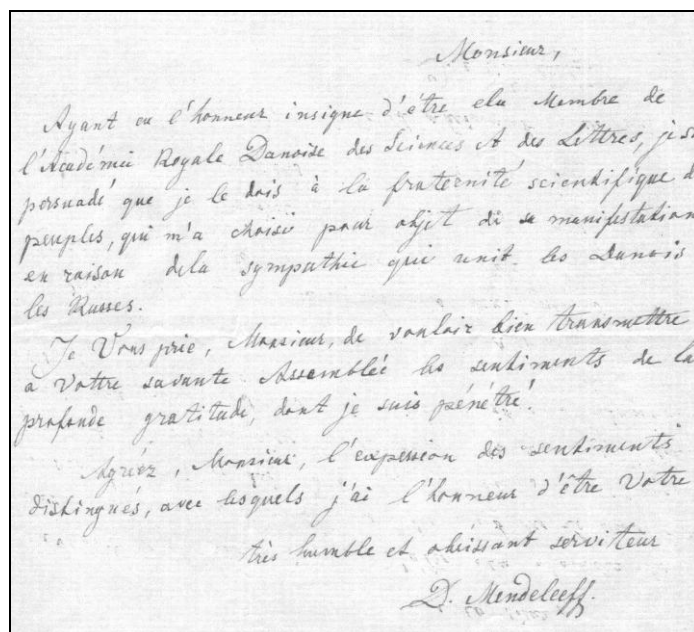 Monsieur,
Ayant eu l'honneur insigne d'être élu Membre de
l'Académie Royale Danoise des Sciences et des Lettres, je su
persuadé que je le dois à la fraternité scientifique d
peuples, qui m'a choisi pour objet de se manifestation
en raison de la sympathie qui unit les Danois
les Russes.
Je Vous prie, Monsieur, de vouloir bien transmettre
a Vottre savante Assemblée les sentiments de la
profonde gratitude, dont je suis pénétré.
Agréez, Monsieur, l'expession des sentiments
distingués, avec lesquels j'ai l'honneur d'être Votre
très humble et obéissant serviteur
D. Mendeleeff.